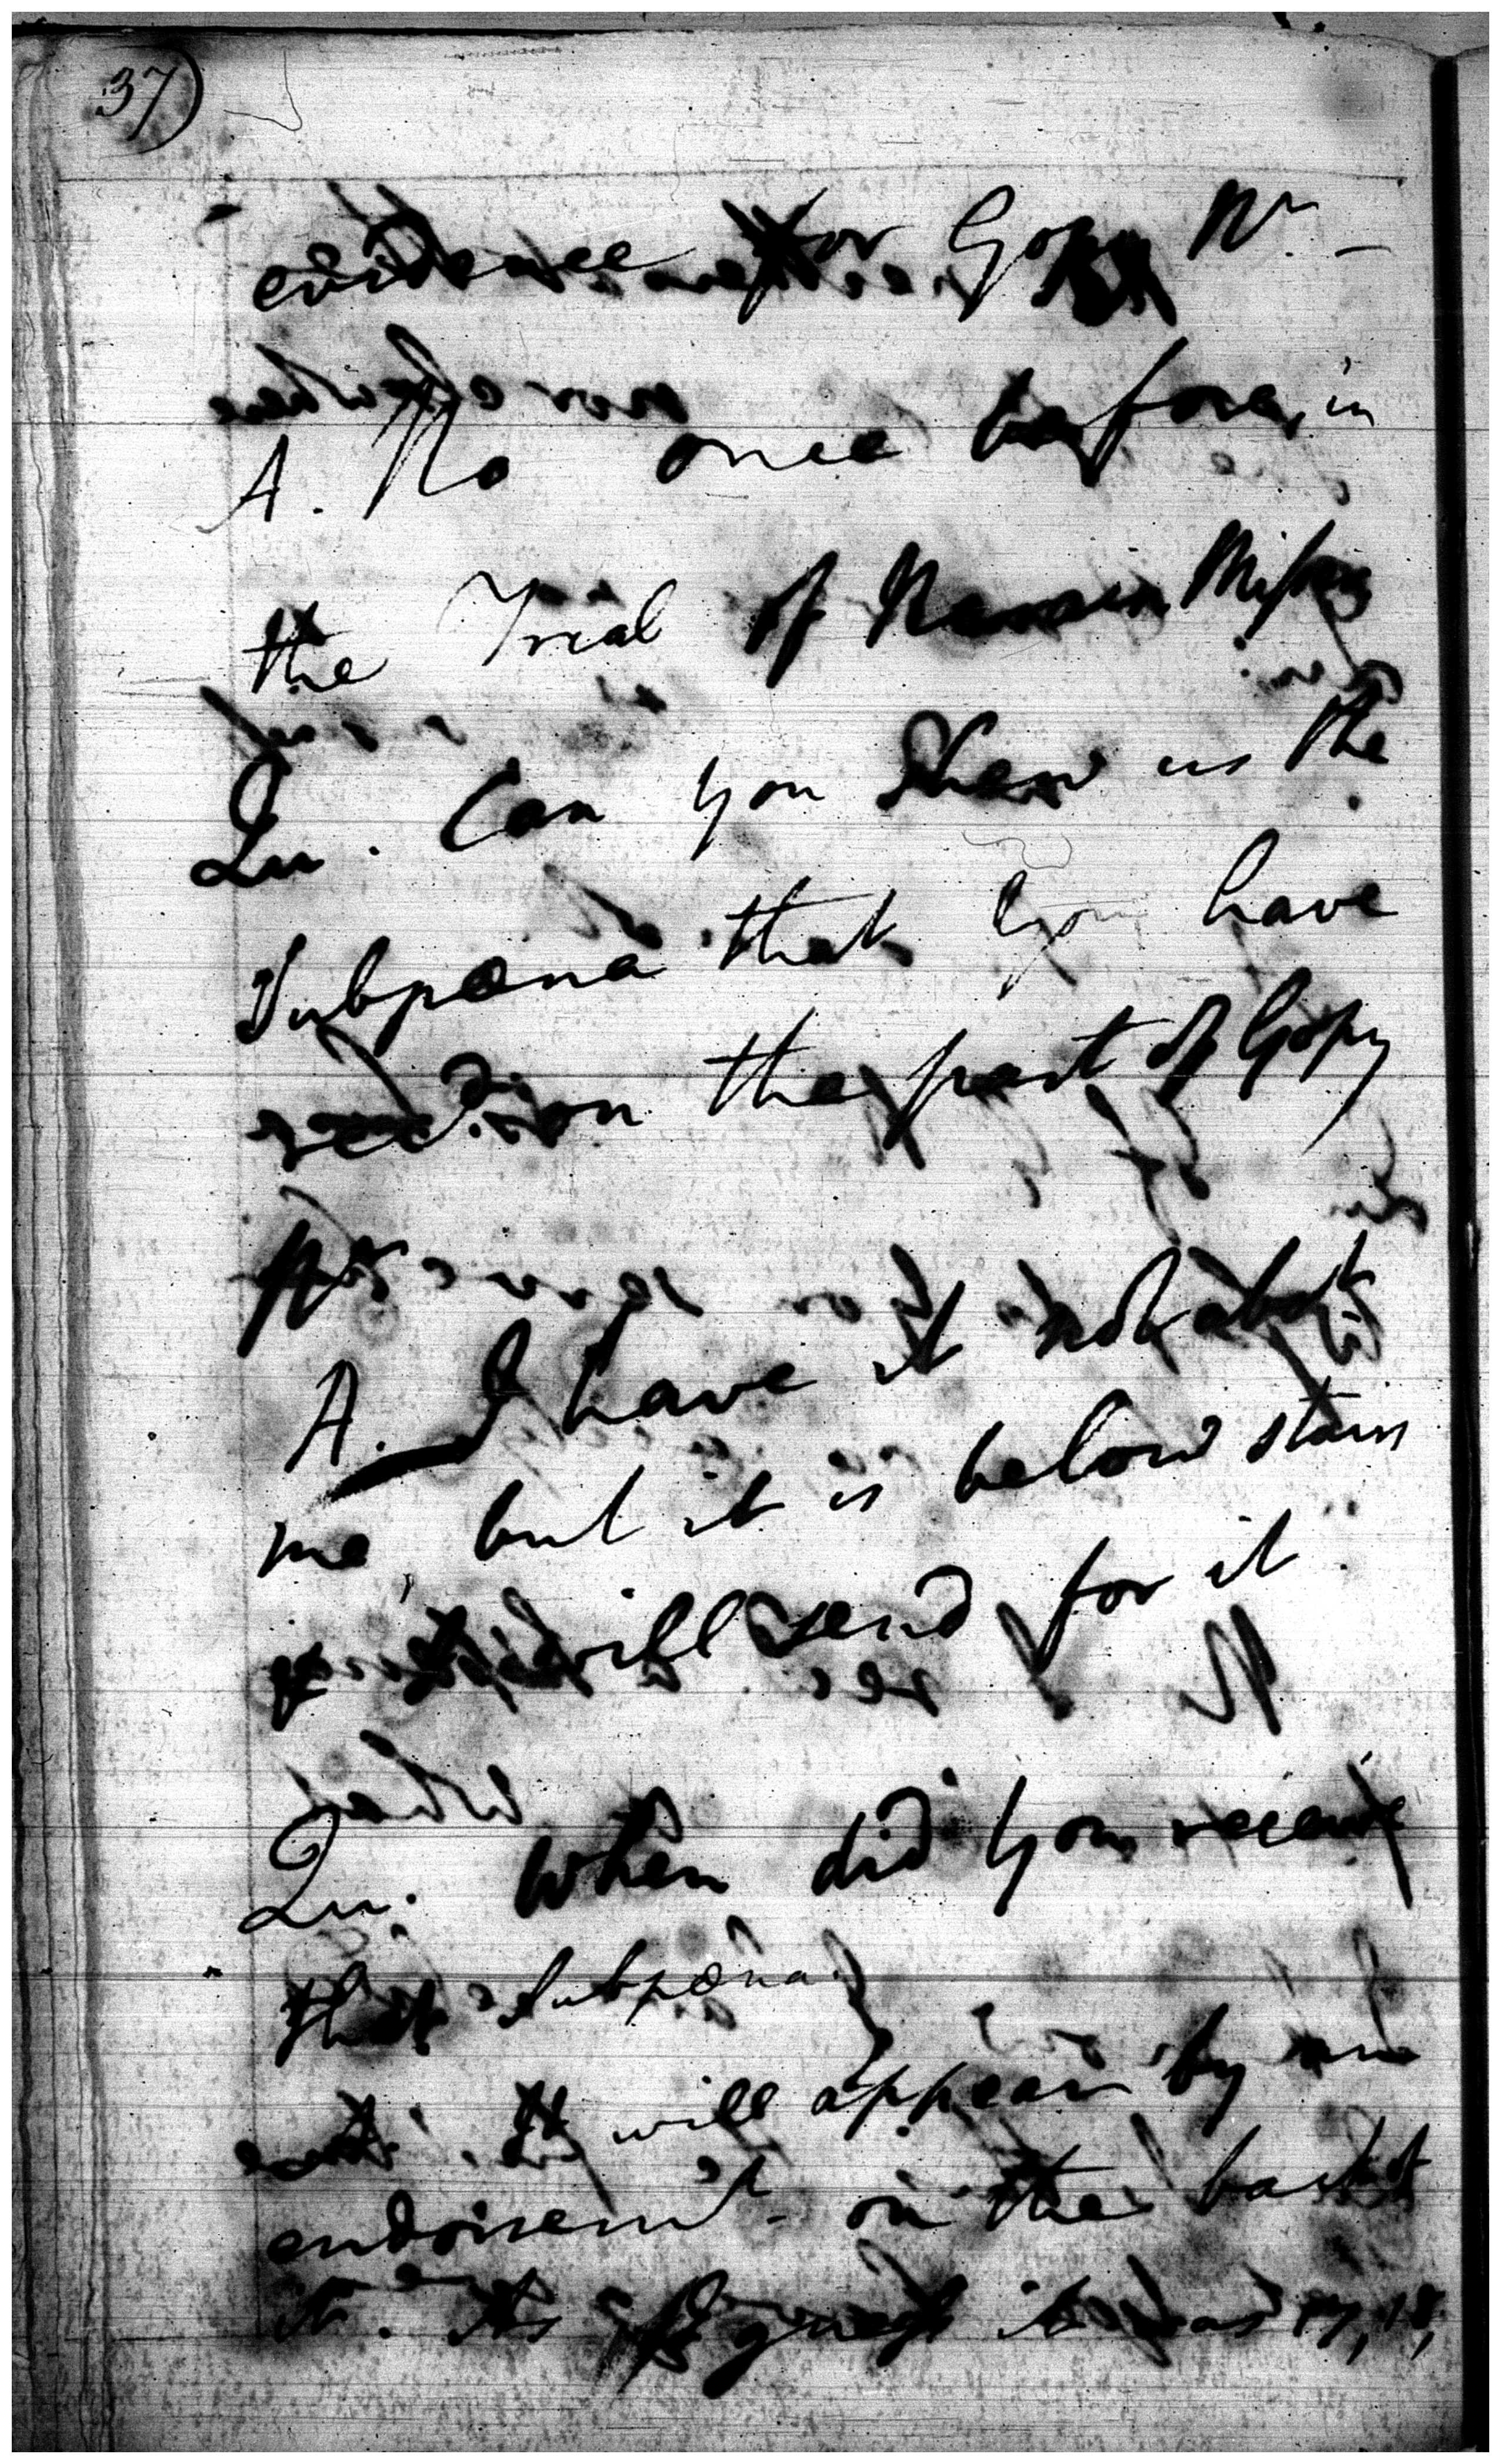 37)
evidence for Gopy Nr. –
A. No once before, in
the Trial of Narrain Missry
Qu. Can you Shew us the
Subpœna that you have
recd. on the part of Gopy
Nr.
A. I have it not abot
me, but it is below stairs
I will send for it
Qu. When did you receive
that Subpœna
A. It will appear by an
endorsemt. on the back of
it. As I guess it was 17, 18,